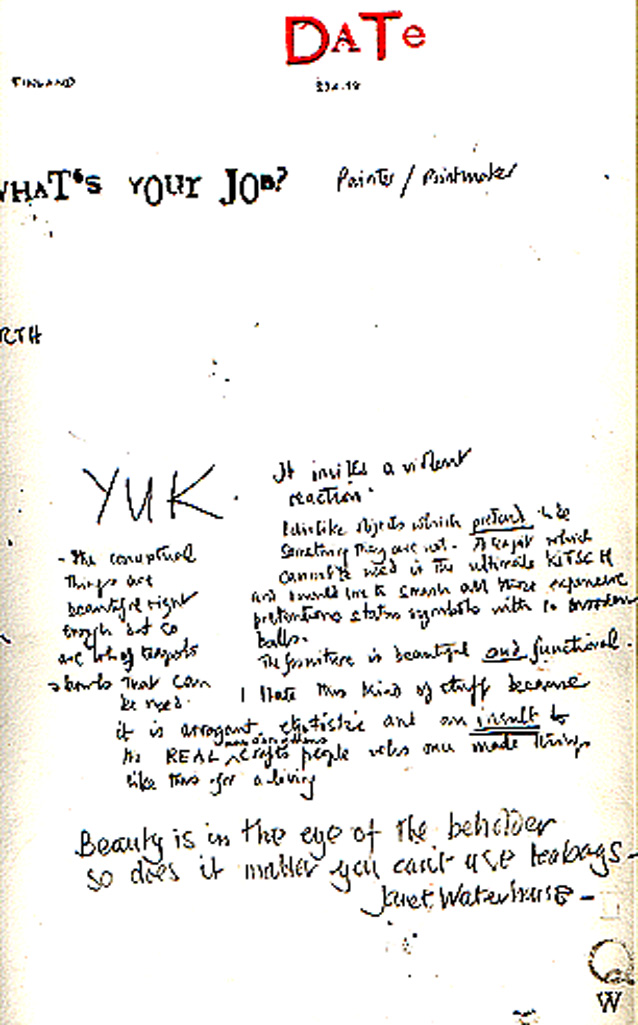 DATE
FINLAND
WHAT'S YOUR JOB? Painter / Printmaker
RTH
YUK.
It invites a violent
reaction.
I dislike objects which pretend to be
something they are not. A teapot which
cannot be used is the ultimate KITSCH
and I would like to smash all these expensive
pretentious status symbols with wooden
balls.
The furniture is beautiful and functional.
- The conceptual
things are
beautiful right
enough but so
are lots of teapots
& bowls that can
be used.
I hate this kind of stuff because
it is arrogant, egotistic and an insult to
REAL crafts people who once made things
like this for a living
Beauty is in the eye of the beholder
so does it matter you can't use teabags -
Janet Waterhouse -
W